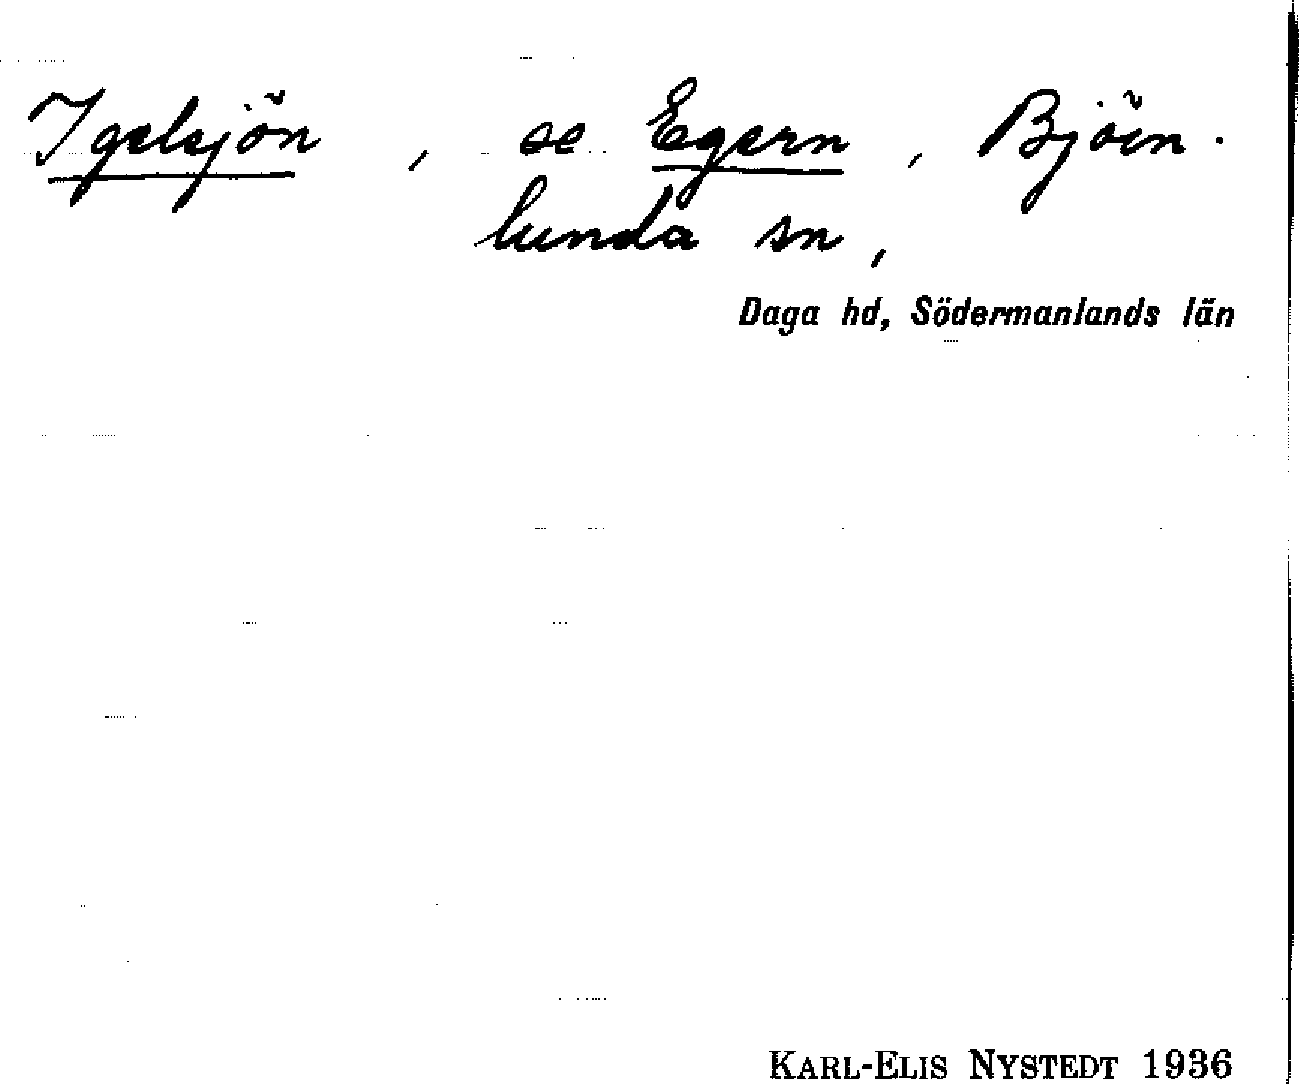 Igelsjön, se Egern, Björn-
lunda sn,
Daga hd, Södermanlands län
KARL-ELIS NYSTEDT 1936